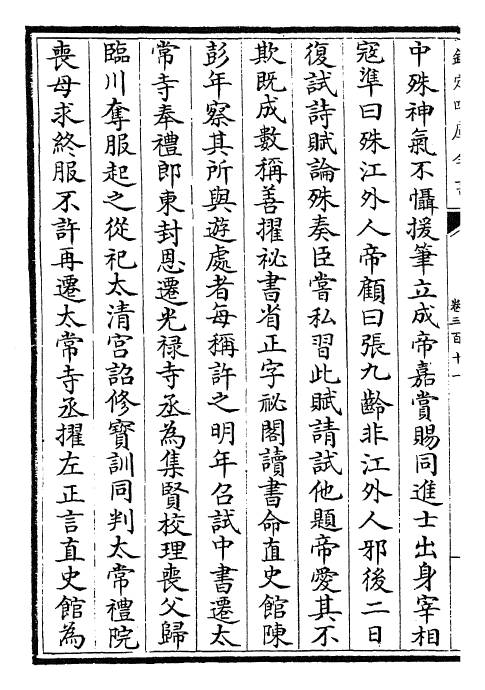 欽定四庫全書
卷三百十一
中殊神氣不懾援筆立成帝嘉賞賜同進士出身宰相
寇凖曰殊江外人帝顧曰張九齡非江外人邪後二日
復試詩賦論殊奏臣嘗私習此賦請試他題帝愛其不
欺既成數稱善擢祕書省正字祕閣讀書命直史館陳
彭年察其所與遊處者每稱許之明年召試中書遷太
常寺奉禮郎東封恩遷光禄寺丞為集賢校理喪父歸
臨川奪服起之從祀太清宮詔修寶訓同判太常禮院
喪母求終服不許再遷太常寺丞擢左正言直史館為